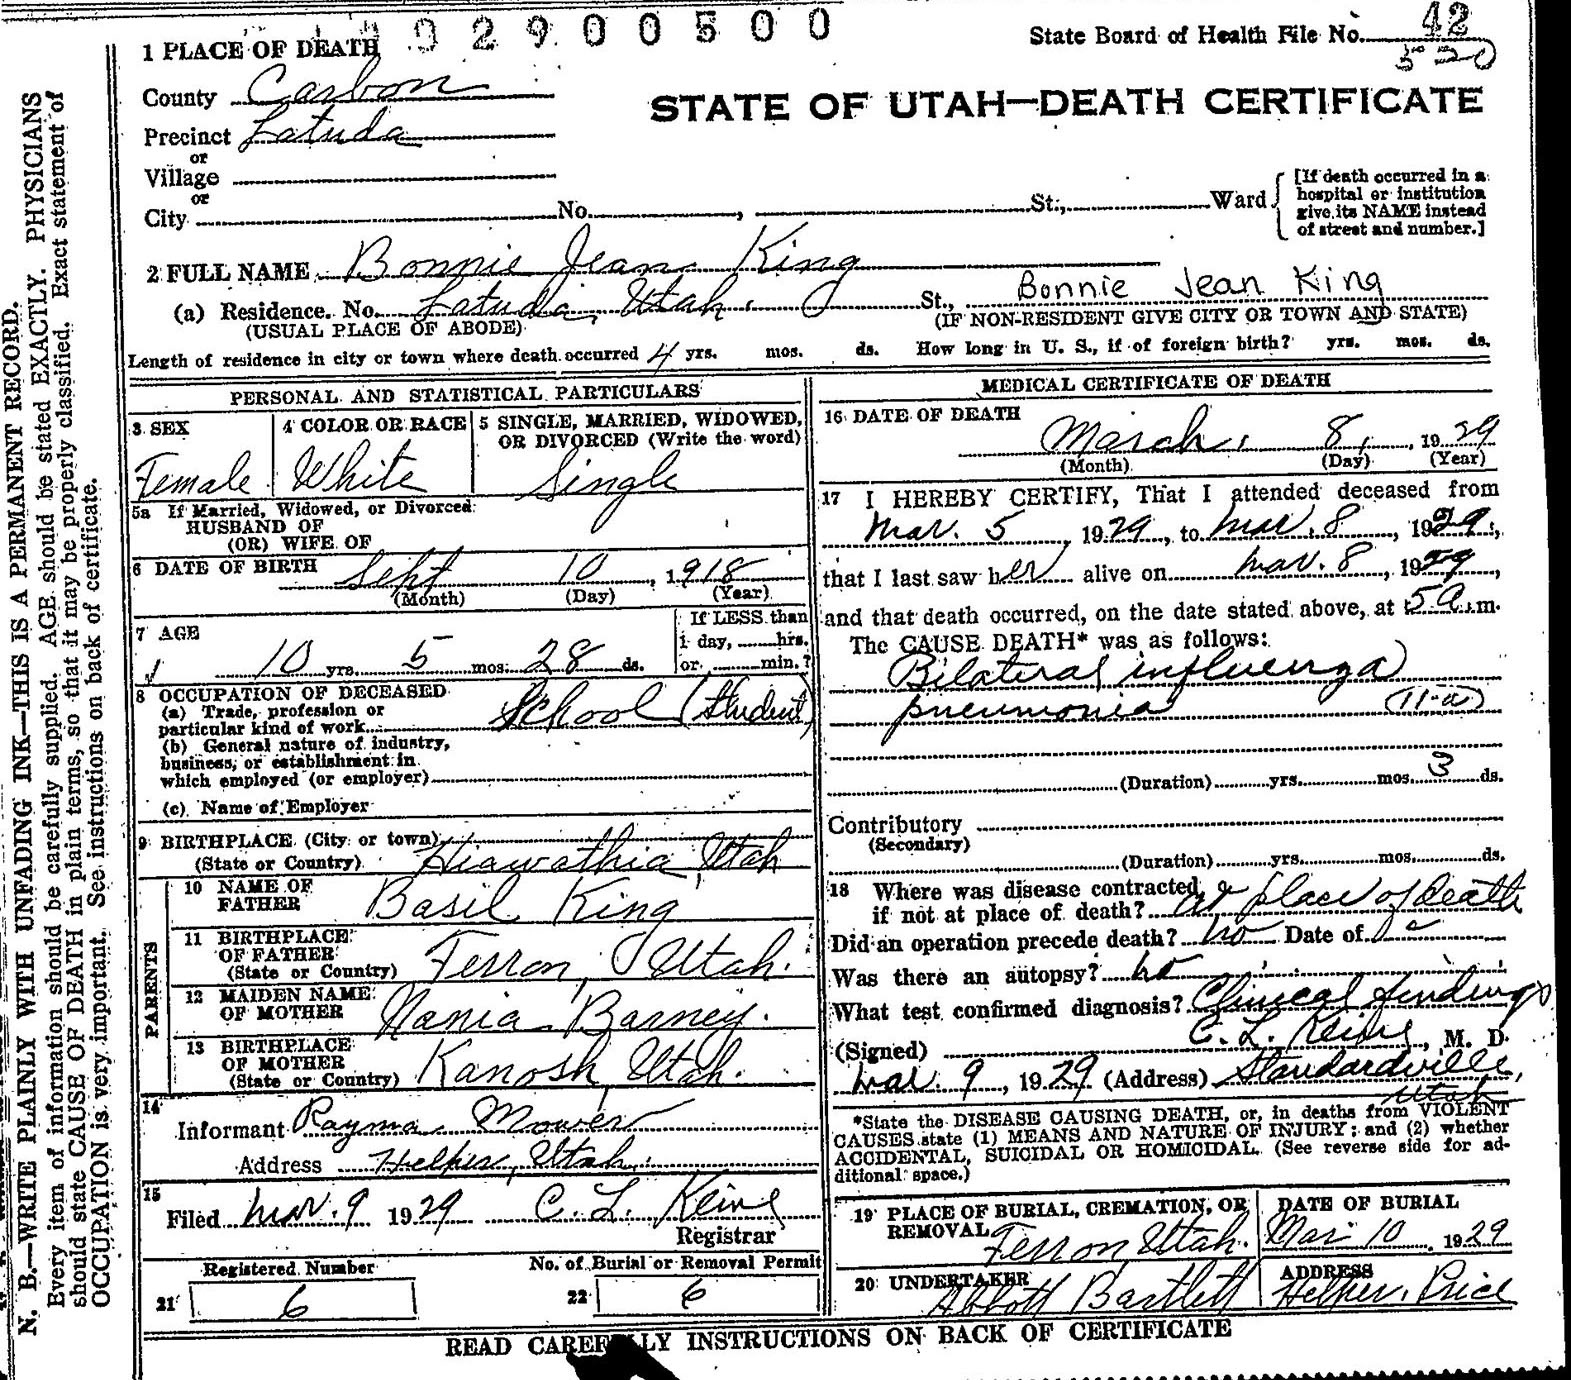 02900500
State Board of Health File No. 42
520
1 PLACE OF DEATH
County Carbon
STATE OF UTAH—DEATH CERTIFICATE
Precinct Latuda
or
Village
or
City No. , St., Ward
[If death occurred in a hospital or institution give its NAME instead of street and number.]
2 FULL NAME Bonnie Jean King
(a) Residence. No. Latuda, Utah. St., Bonnie Jean King
(USUAL PLACE OF ABODE) (IF NON-RESIDENT GIVE CITY OR TOWN AND STATE)
Length of residence in city or town where death occurred 4 yrs. mos. ds. How long in U. S., if of foreign birth? yrs. mos. ds.
PERSONAL AND STATISTICAL PARTICULARS
3 SEX
Female
4 COLOR OR RACE
White
5 SINGLE, MARRIED, WIDOWED, OR DIVORCED (Write the word)
Single
5a If Married, Widowed, or Divorced
HUSBAND OF
(OR) WIFE OF
6 DATE OF BIRTH Sept 10, 1918
(Month) (Day) (Year)
7 AGE
10 yrs. 5 mos. 28 ds.
If LESS than
1 day, hrs.
or min.?
8 OCCUPATION OF DECEASED
(a) Trade, profession or
particular kind of work School (Student)
(b) General nature of industry,
business, or establishment in
which employed (or employer)
(c) Name of Employer
9 BIRTHPLACE (City or town)
(State or Country) Hiawathia, Utah
PARENTS
10 NAME OF FATHER Basil King
11 BIRTHPLACE OF FATHER
(State or Country) Ferron, Utah.
12 MAIDEN NAME OF MOTHER Barney.
13 BIRTHPLACE OF MOTHER
(State or Country) Kanosh, Utah.
14
Informant Rayma Mower
Address Helper, Utah.
15
Filed Mar. 9 1929 C. L.
Registrar
Registered Number
21 6
No. of Burial or Removal Permit
22 6
MEDICAL CERTIFICATE OF DEATH
16 DATE OF DEATH
March 8, 1929
(Month) (Day) (Year)
17 I HEREBY CERTIFY, That I attended deceased from
Mar. 5, 1929, to Mar. 8, 1929,
that I last saw her alive on Mar. 8, 1929,
and that death occurred, on the date stated above, at 5a.m.
The CAUSE DEATH* was as follows:
Bilateral influenza
pneumonia (11-a)
(Duration) yrs. mos. 3 ds.
Contributory
(Secondary)
(Duration) yrs. mos. ds.
18 Where was disease contracted
if not at place of death? at place of death
Did an operation precede death? no Date of
Was there an autopsy? no
What test confirmed diagnosis? Clinical findings
(Signed) C. L. , M. D.
Mar. 9, 1929 (Address) Standardville,
Utah
*State the DISEASE CAUSING DEATH, or, in deaths from VIOLENT
CAUSES state (1) MEANS AND NATURE OF INJURY; and (2) whether
ACCIDENTAL, SUICIDAL OR HOMICIDAL. (See reverse side for ad-
ditional space.)
19 PLACE OF BURIAL, CREMATION, OR REMOVAL
Ferron, Utah.
DATE OF BURIAL
Mar 10, 1929
20 UNDERTAKER
Abbott Bartlett
ADDRESS
Helper, Price
READ CAREFULLY INSTRUCTIONS ON BACK OF CERTIFICATE
N. B.—WRITE PLAINLY WITH UNFADING INK—THIS IS A PERMANENT RECORD.
Every item of information should be carefully supplied. AGE should be stated EXACTLY. PHYSICIANS
should state CAUSE OF DEATH in plain terms, so that it may be properly classified. Exact statement of
OCCUPATION is very important. See instructions on back of certificate.